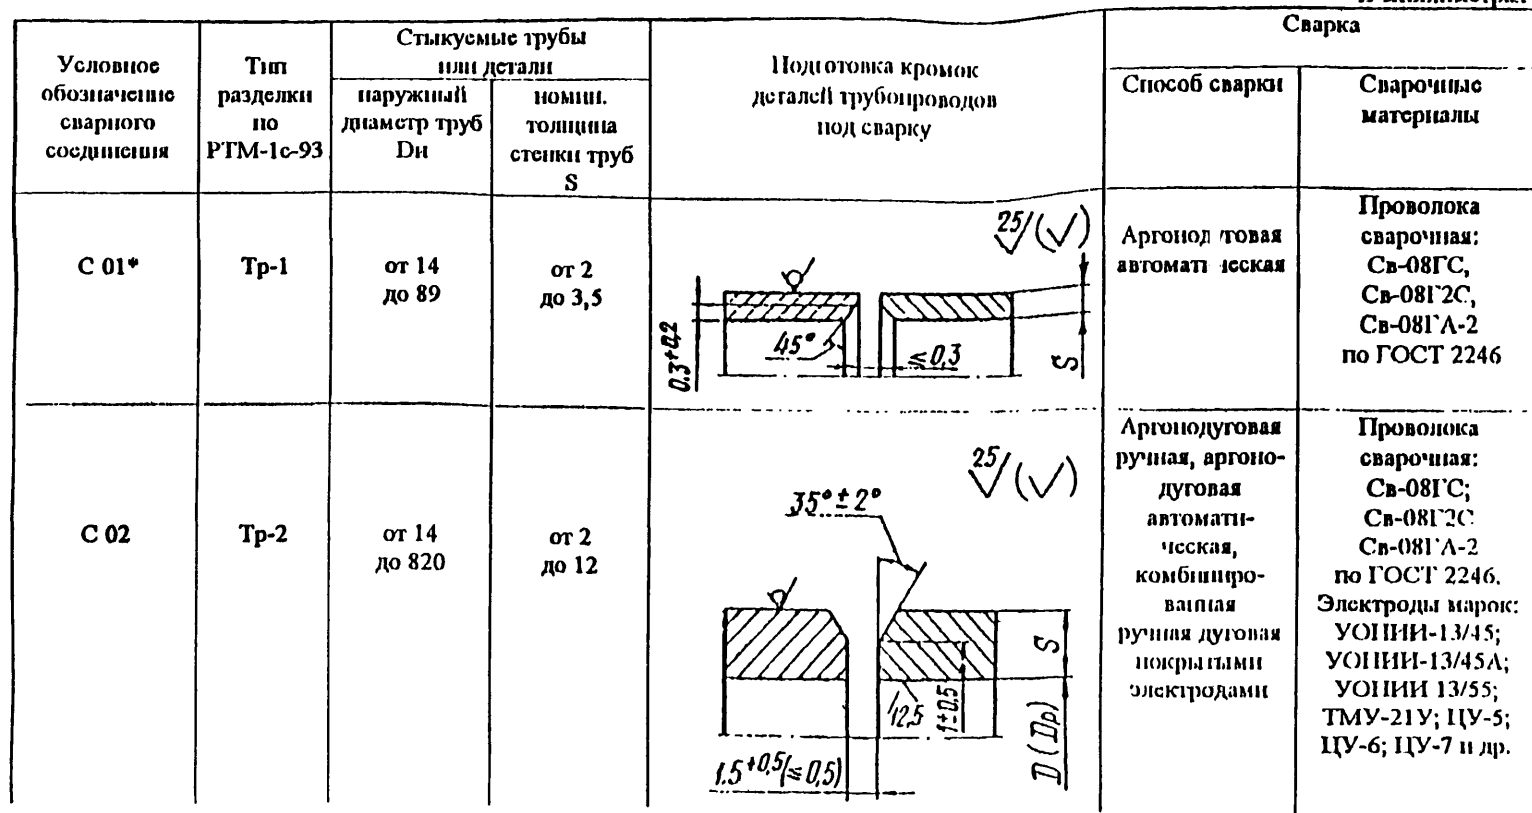 Сварка
Условное
обозначение
сварного
соединения
Тип
разделки
по
РТМ-1с-93
Стыкуемые трубы
или детали
наружный
диаметр труб
Dн
номин.
толщина
стенки труб
S
Подготовка кромок
деталей трубопроводов
под сварку
Способ сварки
Сварочные
материалы
С 01*
Тр-1
от 14
до 89
от 2
до 3,5
25/(✓)
45°
≤0,3
0.3+0,2
S
Аргонодуговая
автоматическая
Проволока
сварочная:
Св-08ГС,
Св-08Г2С,
Св-08ГА-2
по ГОСТ 2246
С 02
Тр-2
от 14
до 820
от 2
до 12
25/(✓)
35°±2°
12,5
1±0,5
S
D (Dр)
1.5+0,5(≤0,5)
Аргонодуговая
ручная, аргоно-
дуговая
автомати-
ческая,
комбиниро-
ванная
ручная дуговая
покрытыми
электродами
Проволока
сварочная:
Св-08ГС;
Св-08Г2С
Св-08ГА-2
по ГОСТ 2246.
Электроды марок:
УОНИИ-13/45;
УОНИИ-13/45А;
УОНИИ 13/55;
ТМУ-21У; ЦУ-5;
ЦУ-6; ЦУ-7 и др.